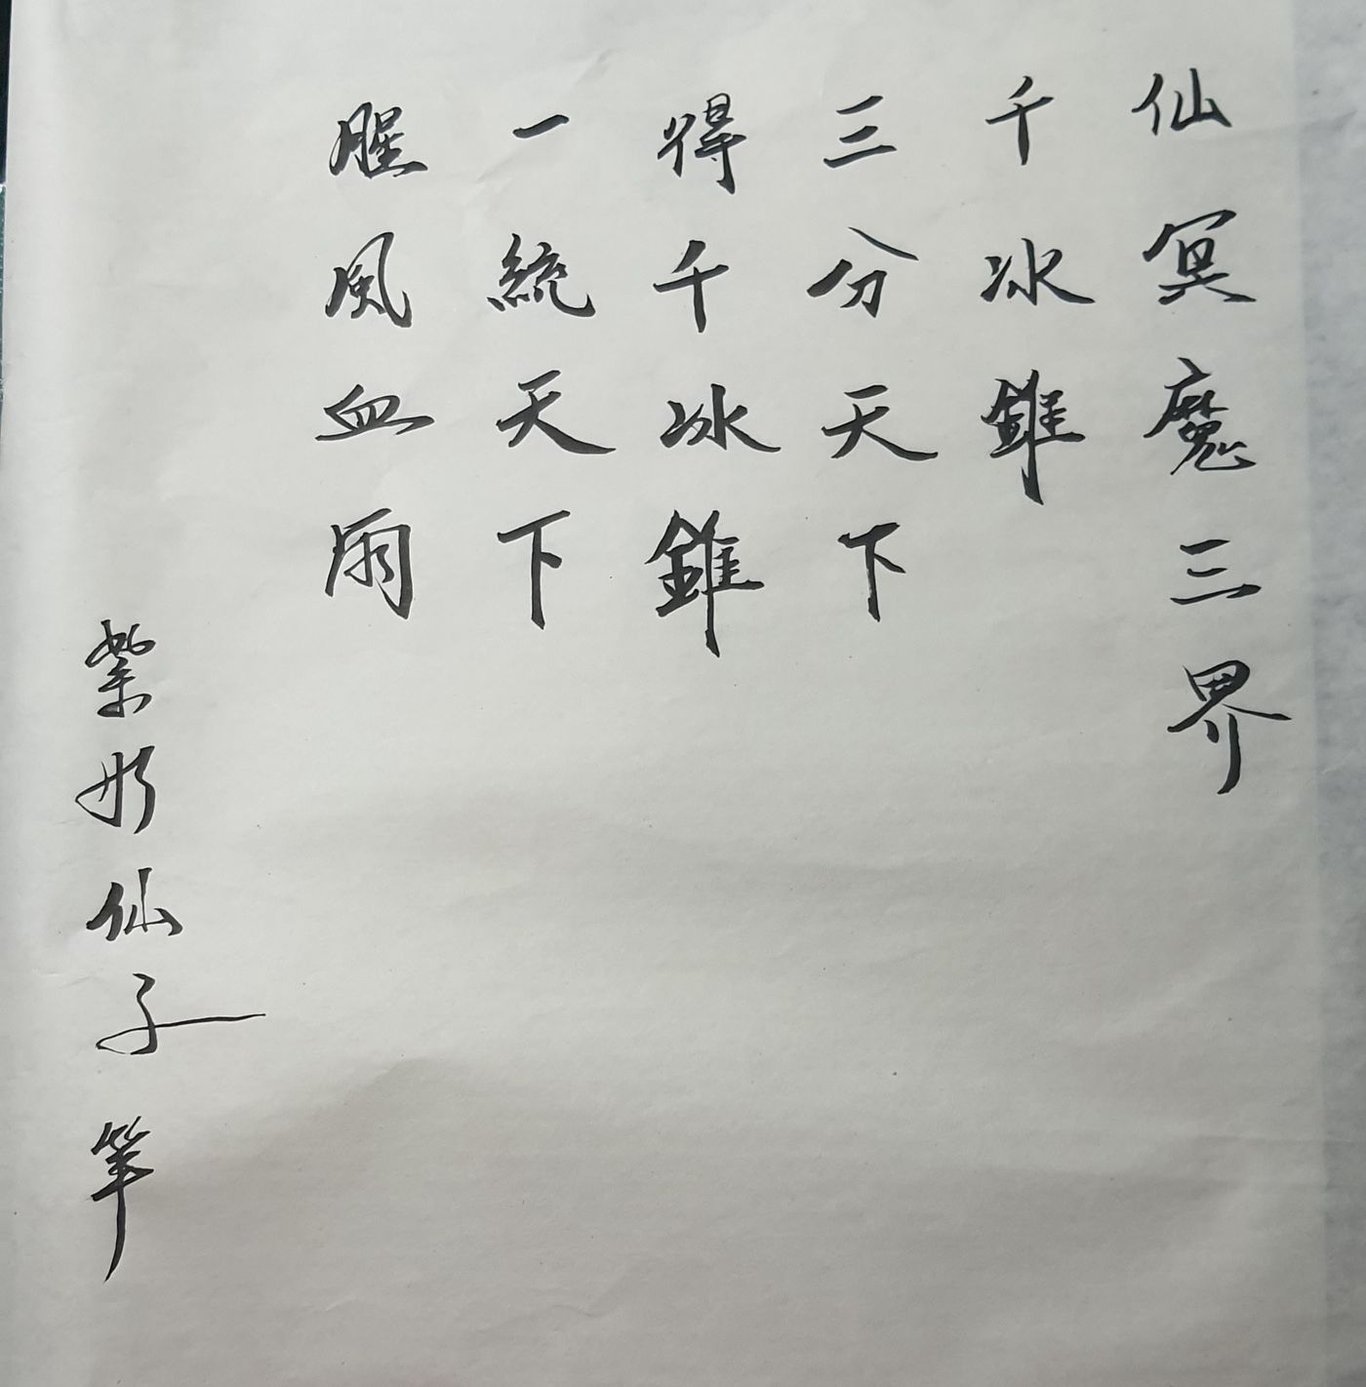 仙冥魔三界
千冰錐
三分天下
得千冰錐
一統天下
腥風血雨
紫彤仙子筆